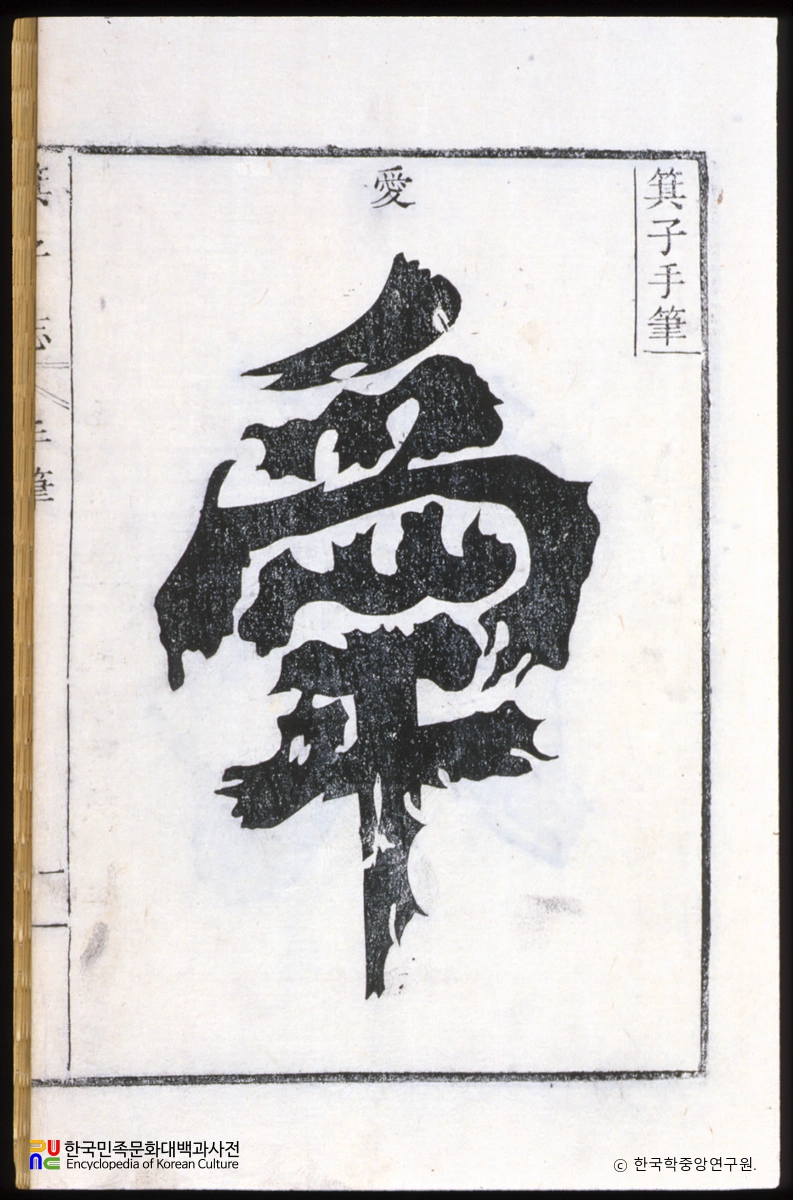 箕子手筆
愛
箕子志 手筆 一
한국민족문화대백과사전
Encyclopedia of Korean Culture
ⓒ 한국학중앙연구원.